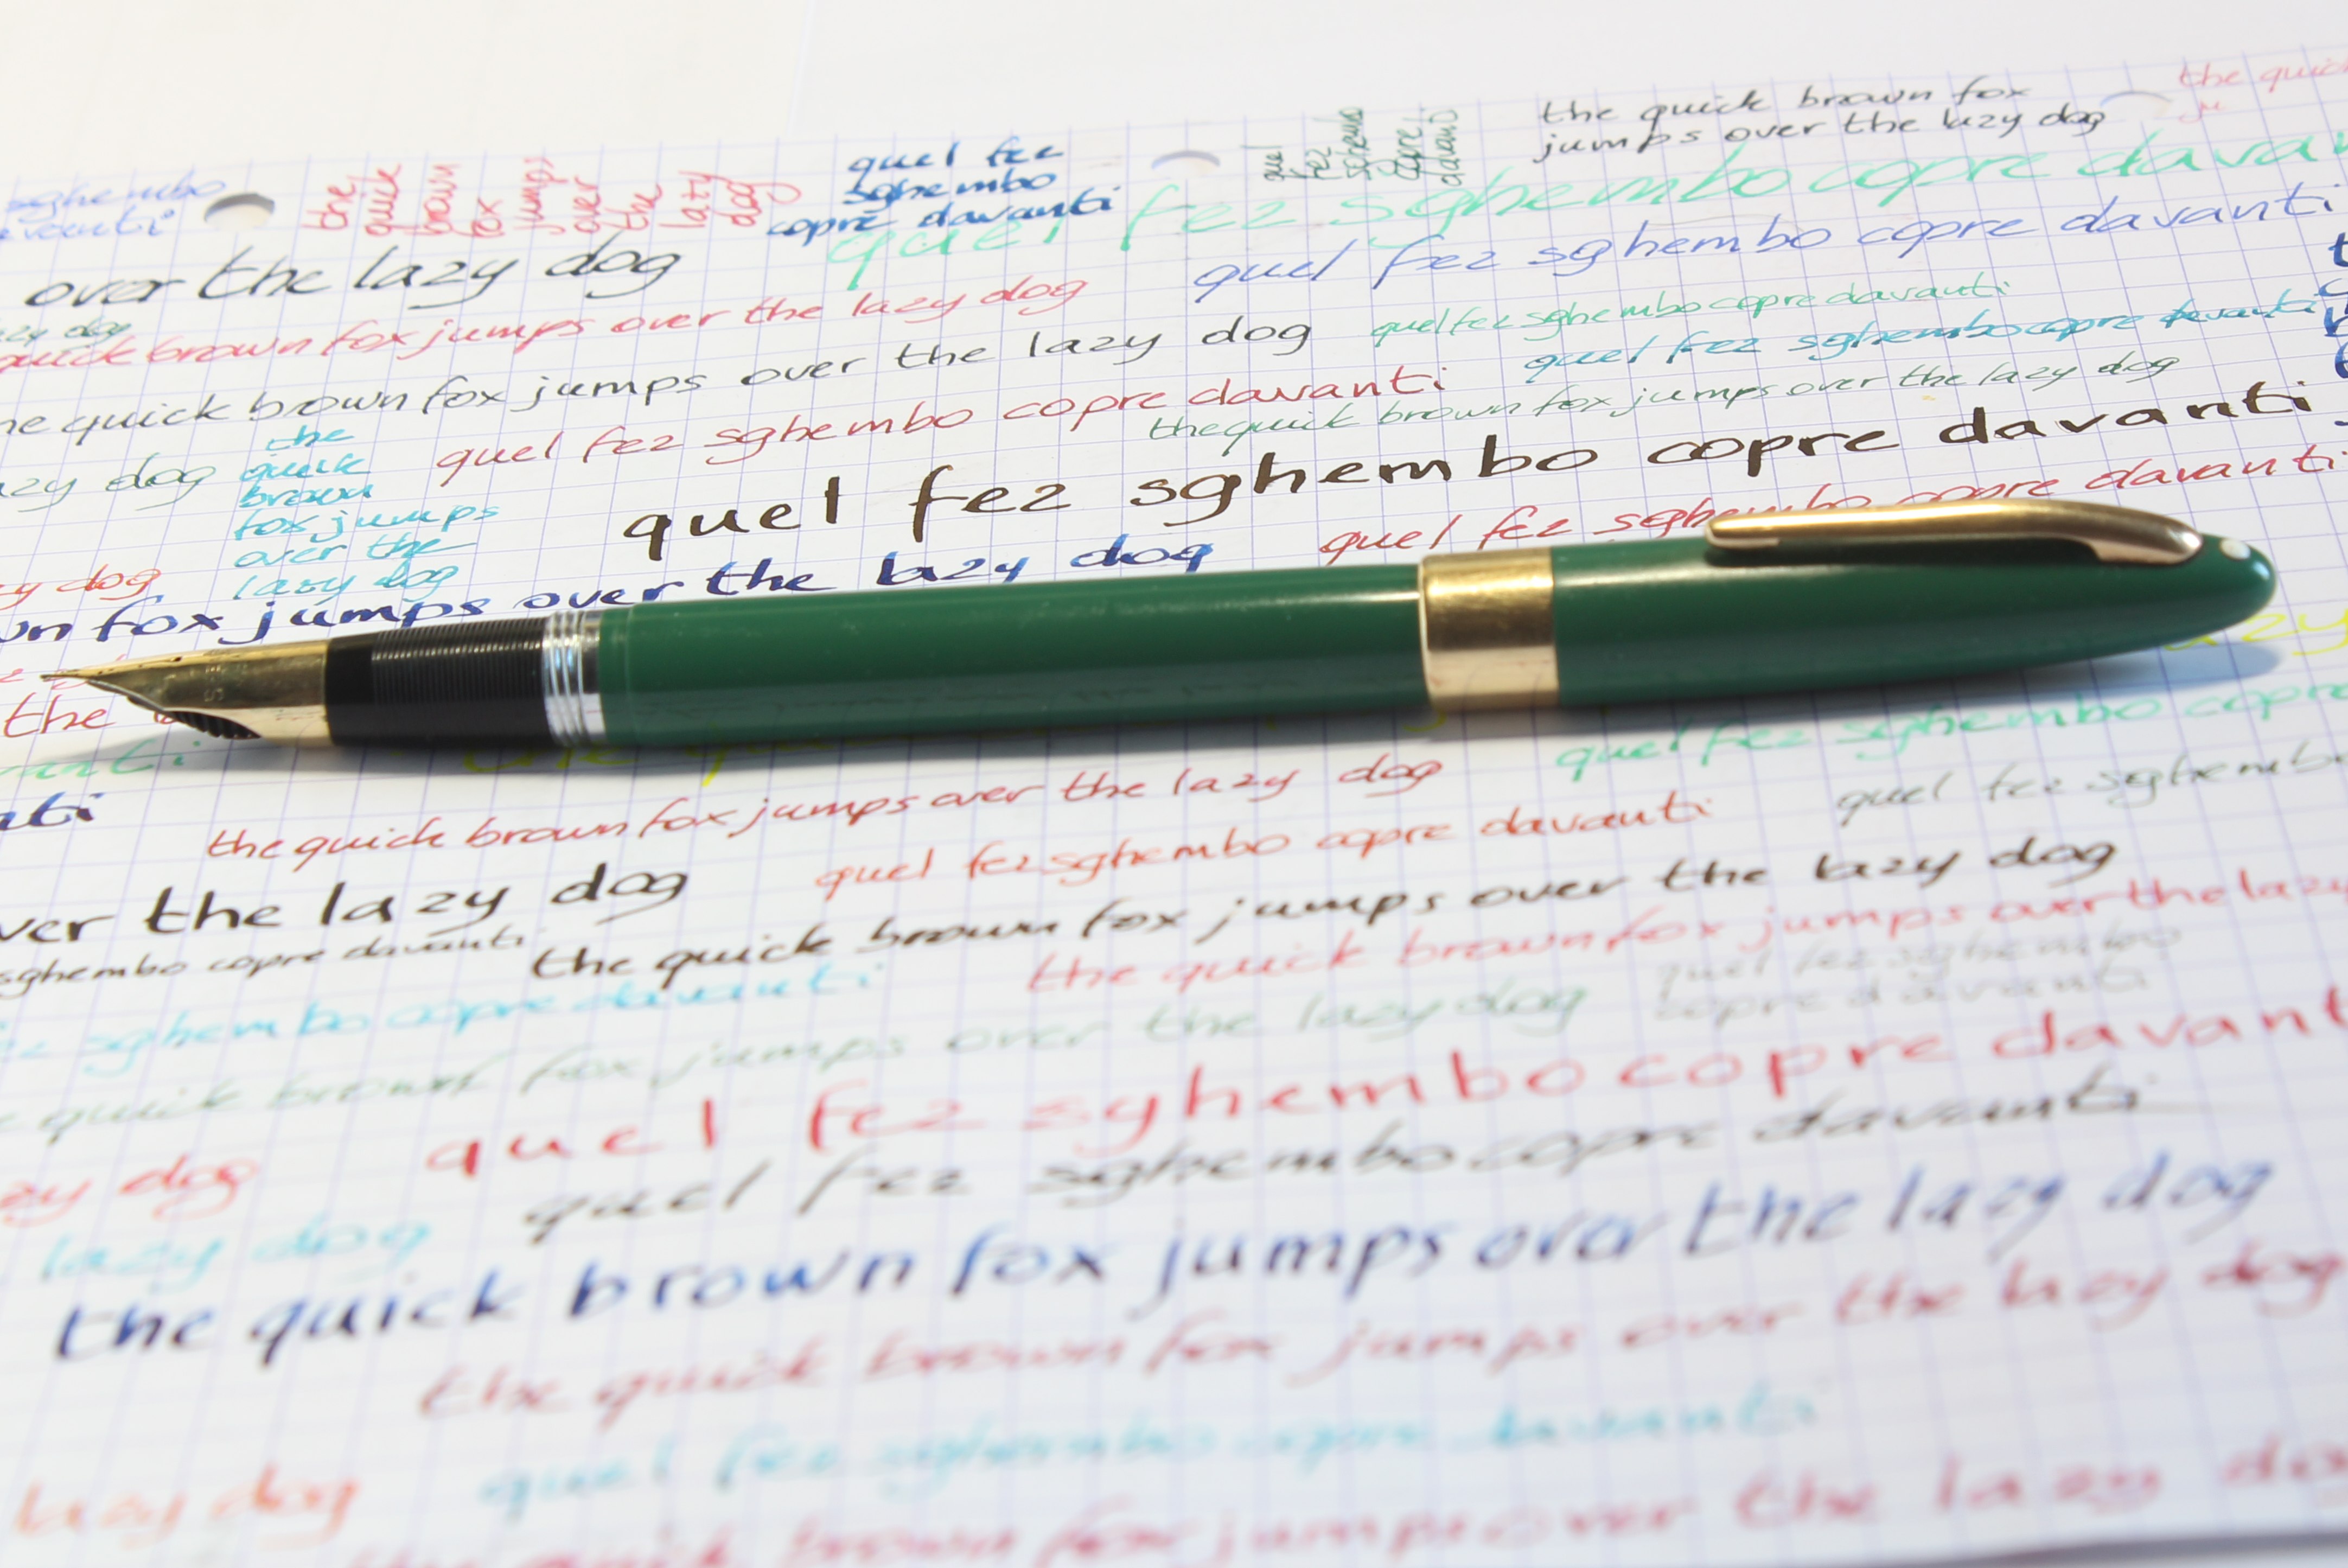 the quick
ju
the quick brown fox
jumps over the lazy dog
sghembo
avanti
the
quick
brown
fox
jumps
over
the
lazy
dog
quel fez
sghembo
copre davanti
quel
fez
sghembo
copre
davanti
quel fez sghembo copre davan
over the lazy dog
quel fez sghembo copre davanti
zy dog
quick brown fox jumps over the lazy dog
quel fez sghembo copre davanti
he quick brown fox jumps over the lazy dog
quel fez sghembo copre davanti
quel fez sghembo copre davanti
the quick brown fox jumps over the lazy dog
azy dog
the
quick
brown
fox jumps
over the
lazy dog
quel fez sghembo copre davanti
quel fez sghembo copre davanti
zy dog
wn fox jumps over the lazy dog
azy
the
anti
quel fez sghembo copre
ati
the quick brown fox jumps over the lazy dog
quel fez sghembo
quel fez sghembo copre davanti
ver the lazy dog
the quick brown fox jumps over the lazy dog
sghembo copre davanti
the quick brown fox jumps over the lazy
quel fez sghembo
copre davanti
ez sghembo copre davanti
e quick brown fox jumps over the lazy dog
quel fez sghembo copre davant
zy dog
quel fez sghembo copre davanti
lazy dog
the quick brown fox jumps over the lazy dog
the quick brown fox jumps over the lazy dog
quel fez sghembo copre davanti
lazy dog
quick brown fox jumps over the lazy do